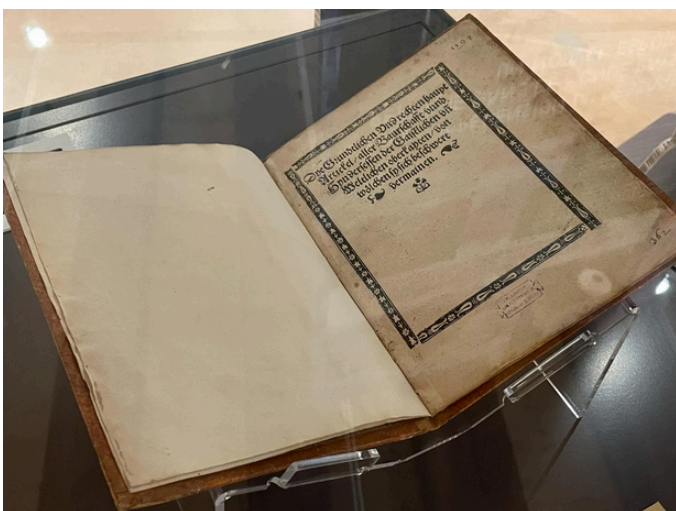 Dye Grundtlichen Vnd rechten haupt
Artickel/ aller Baurschafft vnnd
Hyndersessen der Gaistlichen vñ
Weltlichen oberkayten/ von
wölchen sy sich beschwert
vermainen.
362